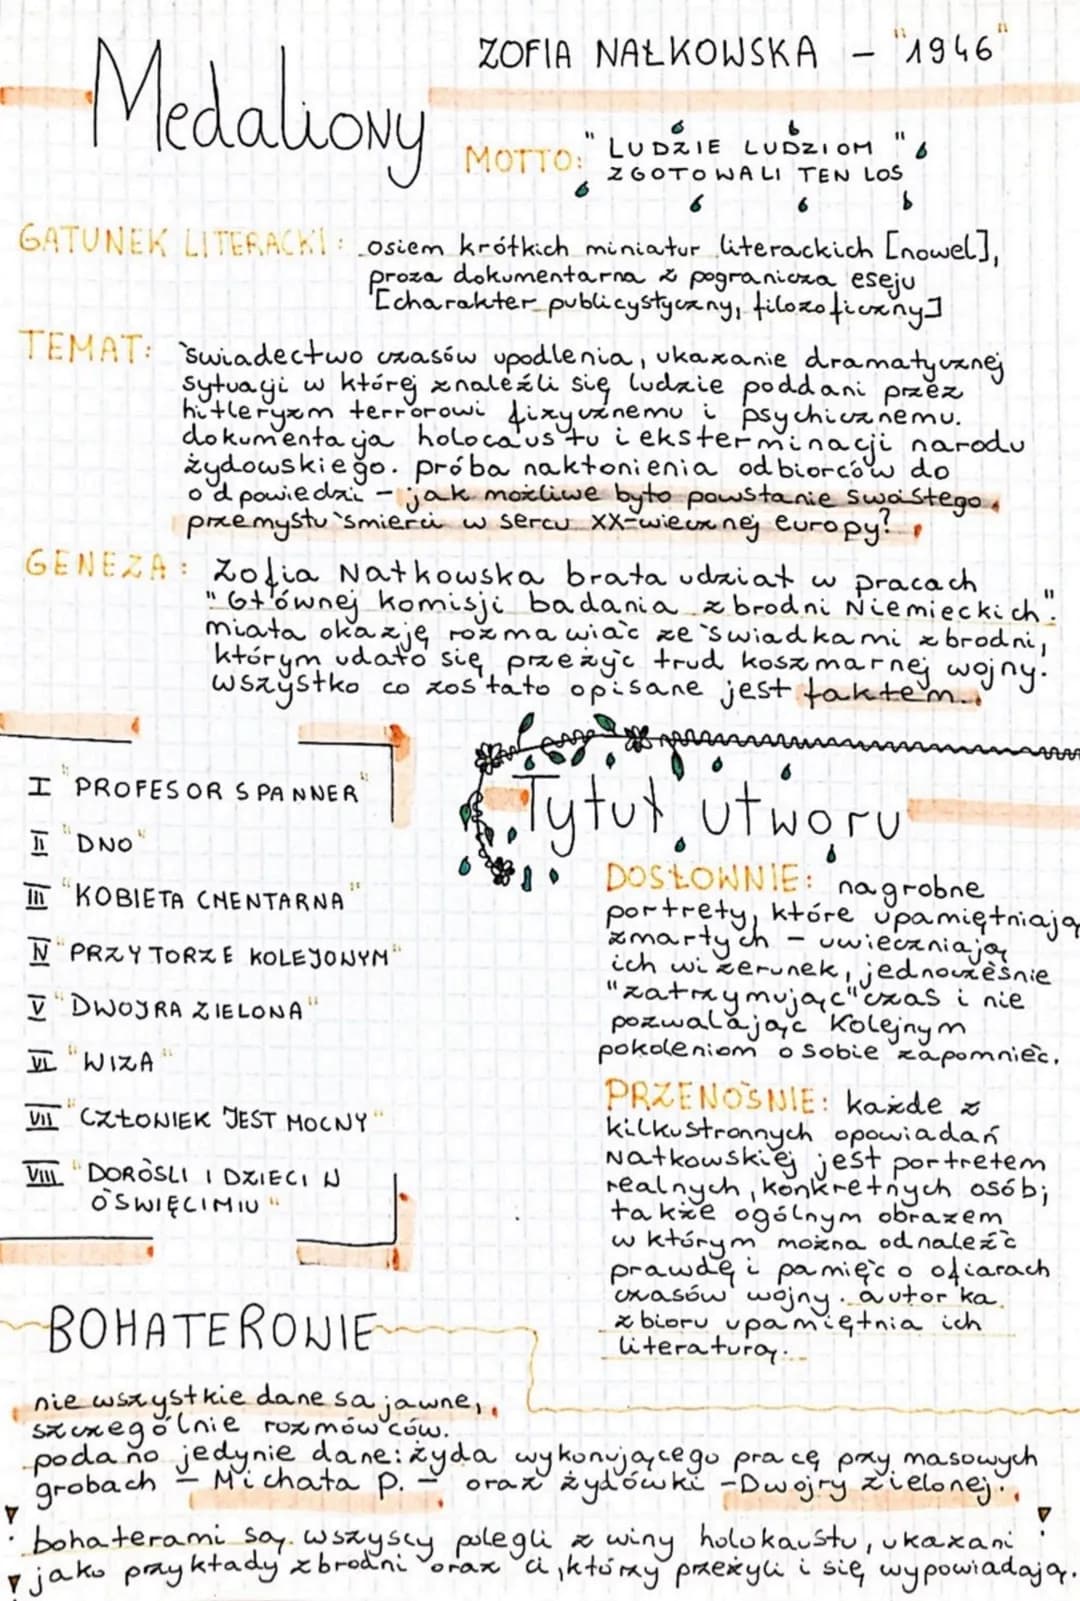 Medaliony
ZOFIA NAŁKOWSKA – "1946"
MOTTO: "LUDZIE LUDZIOM"
ZGOTOWALI TEN LOS
GATUNEK LITERACKI: osiem krótkich miniatur literackich [nowel],
proza dokumentarna z pogranicza eseju
[charakter publicystyczny, filozoficzny]
TEMAT: świadectwo czasów upodlenia, ukazanie dramatycznej
sytuacji w której znaleźli się ludzie poddani przez
hitleryzm terrorowi fizycznemu i psychicznemu.
dokumentacja holocaustu i eksterminacji narodu
żydowskiego. próba nakłonienia odbiorców do
odpowiedzi – jak możliwe było powstanie swoistego
przemysłu śmierci w sercu XX-wiecznej europy?
GENEZA: Zofia Nałkowska brała udział w pracach
"Głównej komisji badania zbrodni Niemieckich".
miała okazję rozmawiać ze świadkami zbrodni,
którym udało się przeżyć trud koszmarnej wojny.
wszystko co zostało opisane jest faktem.
I "PROFESOR SPANNER"
II "DNO"
III "KOBIETA CMENTARNA"
IV "PRZY TORZE KOLEJOWYM"
V "DWOJRA ZIELONA"
VI "WIZA"
VII "CZŁOWIEK JEST MOCNY"
VIII "DOROŚLI I DZIECI W
OŚWIĘCIMIU"
Tytuł utworu
DOSŁOWNIE: nagrobne
portrety, które upamiętniają
zmarłych – uwieczniają
ich wizerunek, jednocześnie
"zatrzymując" czas i nie
pozwalając kolejnym
pokoleniom o sobie zapomnieć.
PRZENOŚNIE: każde z
kilkustronnych opowiadań
Nałkowskiej jest portretem
realnych, konkretnych osób;
także ogólnym obrazem
w którym można odnaleźć
prawdę i pamięć o ofiarach
czasów wojny. autorka
zbioru upamiętnia ich
literaturą.
BOHATEROWIE
nie wszystkie dane są jawne,
szczególnie rozmówców.
podano jedynie dane: żyda wykonującego pracę przy masowych
grobach – Michała P. – oraz żydówki – Dwojry Zielonej.
! bohaterami są wszyscy polegli z winy holokaustu, ukazani !
jako przykłady zbrodni oraz ci, którzy przeżyli i się wypowiadają.